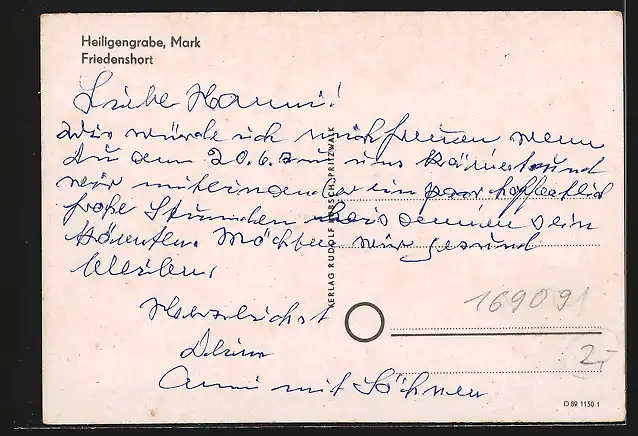 Heiligengrabe, Mark
Friedenshort
Liebe Hanni!
Wie würde ich mich freuen wenn
Du am 20.6. zu uns kämest und
wir miteinander ein paar hoffentlich
frohe Stunden beisammen sein
könnten. Möchten wir gesund
bleiben.
Herzlichst
Deine
Anni mit Söhnen
VERLAG RUDOLF PRITZWALK
169091
2,-
D 89 1150 1